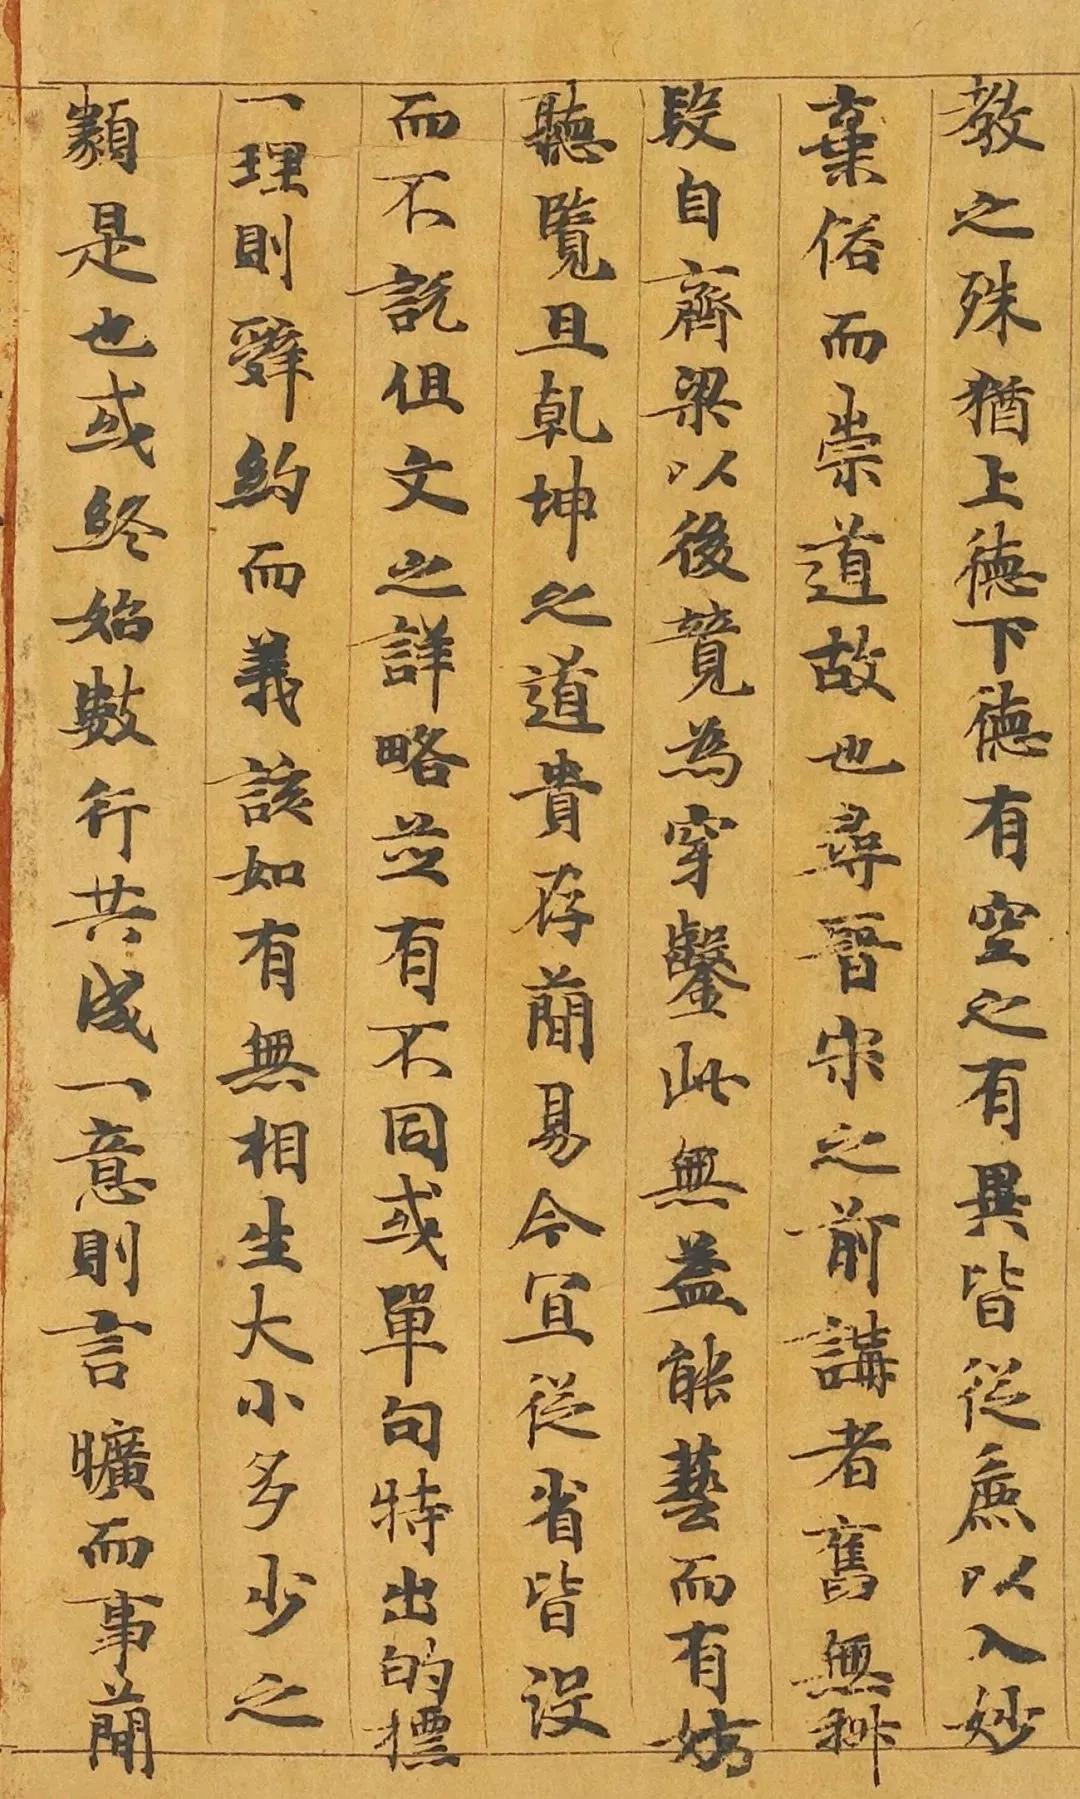 教之殊猶上德下德有空之有異皆從麁以入妙
棄俗而崇道故也尋晉宋之前講者舊無科
段自齊梁以後競為穿鑿此無益能藝而有妨
聽覽且乹坤之道貴存蕳易今宜從省皆沒
而不說但文之詳略並有不同或單句特出的摽
一理則辤約而義該如有無相生大小多少之
纇是也或終始數行共成一意則言曠而事蕳